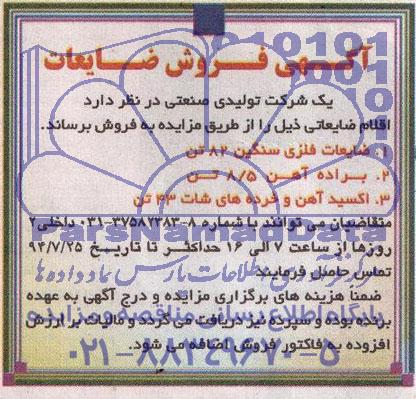 آگهی فروش ضایعات
یک شرکت تولیدی صنعتی در نظر دارد
اقلام ضایعاتی ذیل را از طریق مزایده به فروش برساند.
۱. ضایعات فلزی سنگین ۸۲ تن
۲. براده آهن ۸/۵ تن
۳. اکسید آهن و خرده های شات ۴۳ تن
متقاضیان می توانند با شماره ۸-۰۳۱-۳۷۵۸۷۲۸۳ داخلی ۲
روزها از ساعت ۷ الی ۱۶ حداکثر تا تاریخ ۹۴/۷/۲۵
تماس حاصل فرمایند
ضمنا هزینه های برگزاری مزایده و درج آگهی به عهده
برنده بوده و سپرده نیز دریافت می گردد و مالیات بر ارزش
افزوده به فاکتور فروش اضافه می شود.
ParsNamadData
پایگاه اطلاع رسانی مناقصه و مزایده
۰۲۱-۸۸۳۴۹۶۷۰-۵